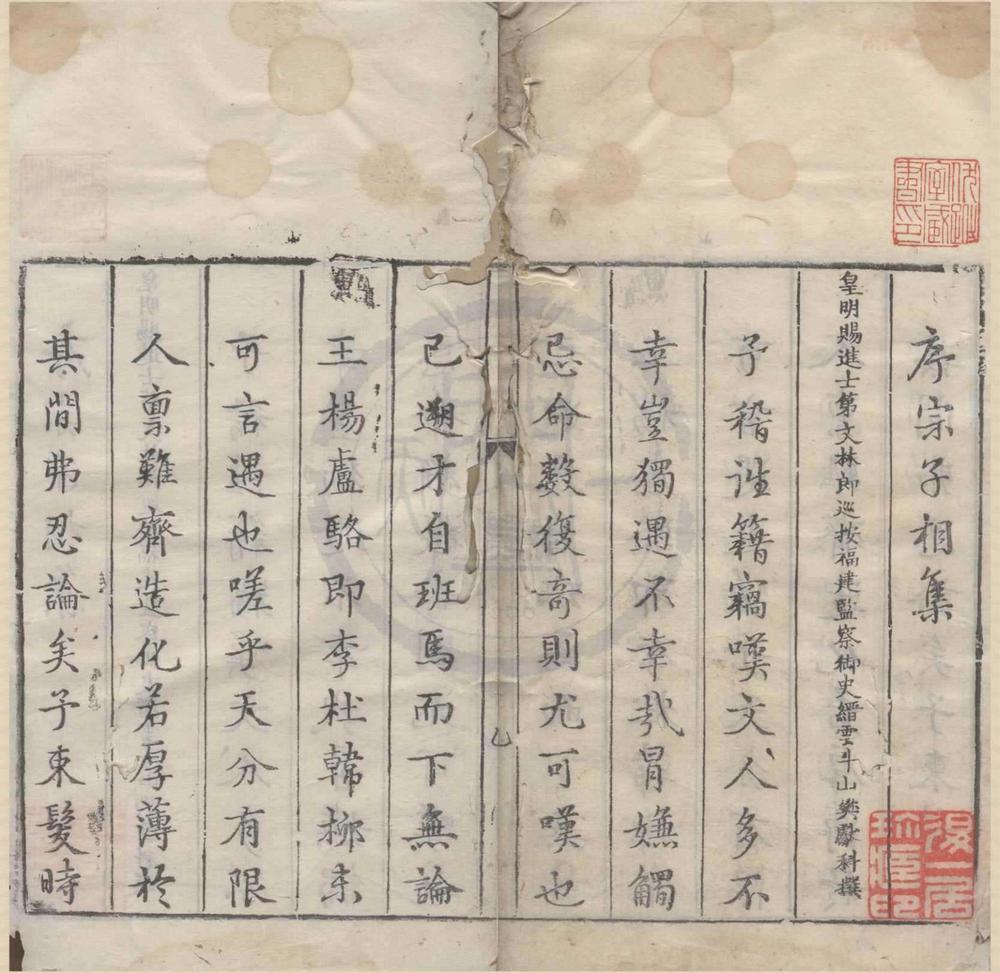 序宗子相集
皇明賜進士第文林郎巡按福建監察御史縉雲斗山樊獻科撰
予稽詮籍竊嘆文人多不
幸豈獨遇不幸哉冐嫌觸
忌命數復奇則尤可嘆也
已遡才自班馬而下無論
王楊盧駱即李杜韓柳未
可言遇也嗟乎天分有限
人禀難齊造化若厚薄於
其間弗忍論矣予束髮時